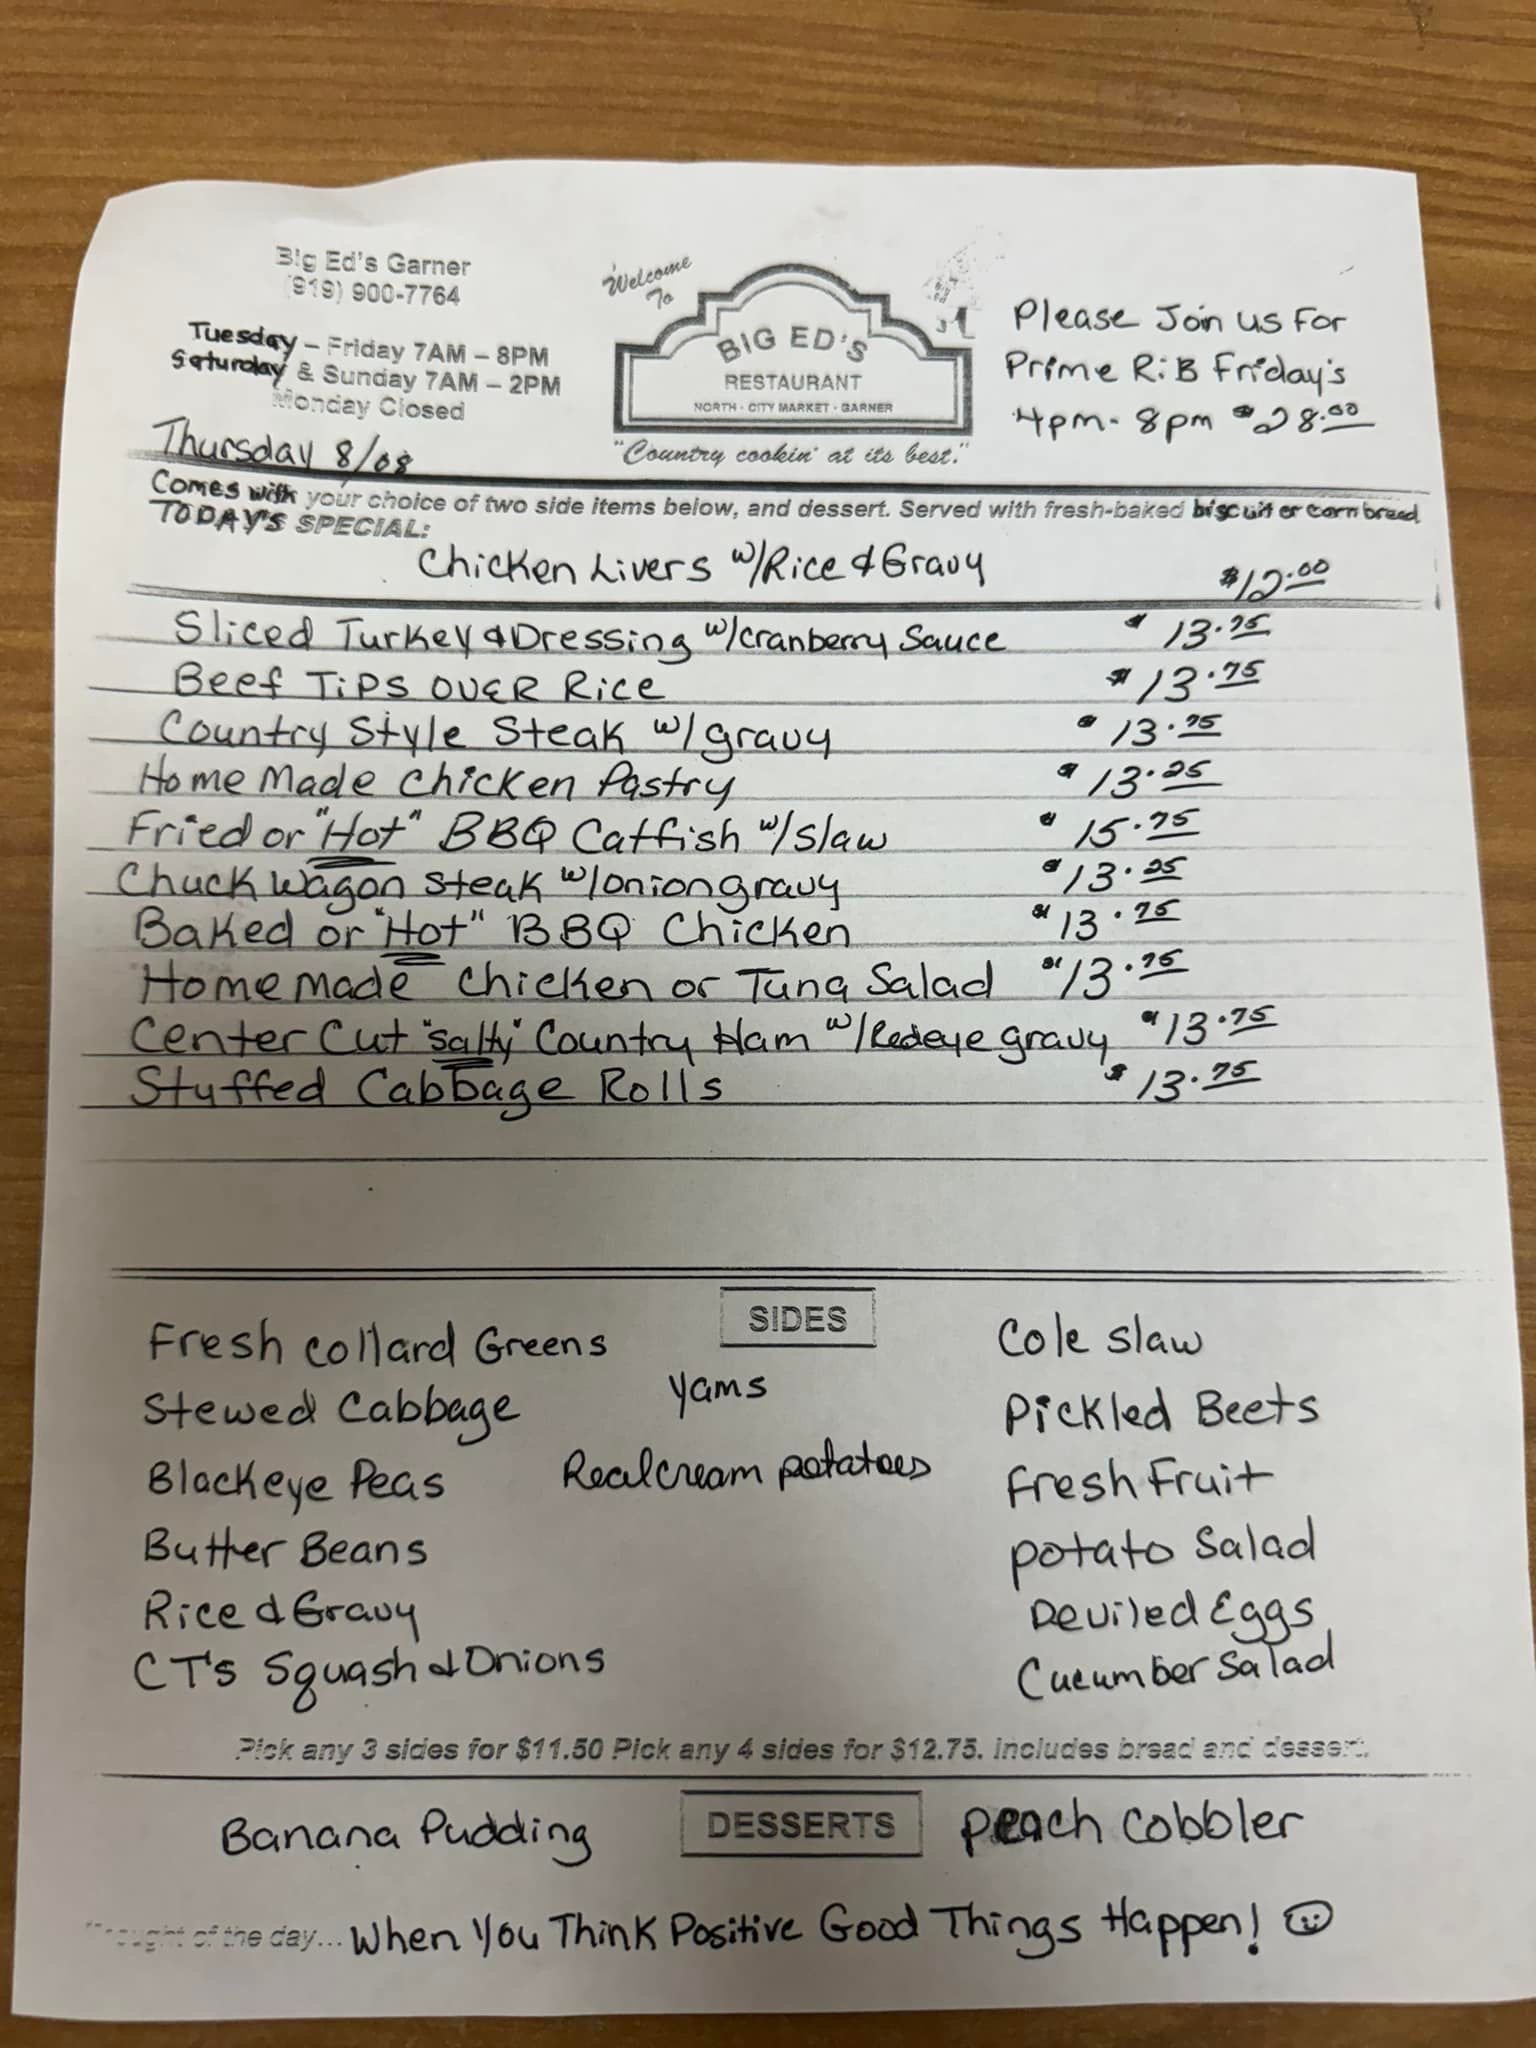 Big Ed's Garner
(919) 900-7764
Tuesday – Friday 7AM – 8PM
Saturday & Sunday 7AM – 2PM
Monday Closed
Thursday 8/08
Welcome
To
BIG ED'S
RESTAURANT
NORTH · CITY MARKET · GARNER
"Country cookin' at its best."
Please Join us For
Prime RiB Friday's
4pm - 8pm $28.00
Comes with your choice of two side items below, and dessert. Served with fresh-baked biscuit or corn bread
TODAY'S SPECIAL:
Chicken Livers w/Rice & Gravy $12.00
Sliced Turkey & Dressing w/cranberry Sauce $13.75
Beef TiPS OVER Rice $13.75
Country Style Steak w/gravy $13.75
Home Made Chicken Pastry $13.25
Fried or "Hot" BBQ Catfish w/slaw $15.75
Chuck Wagon Steak w/onion gravy $13.25
Baked or "Hot" BBQ Chicken $13.75
Home made Chicken or Tuna Salad $13.75
Center Cut "salty" Country Ham w/Redeye gravy $13.75
Stuffed Cabbage Rolls $13.75
SIDES
Fresh Collard Greens
Stewed Cabbage
Blackeye Peas
Butter Beans
Rice & Gravy
CT's Squash & Onions
Yams
Real cream potatoes
Cole Slaw
Pickled Beets
Fresh Fruit
Potato Salad
Deviled Eggs
Cucumber Salad
Pick any 3 sides for $11.50 Pick any 4 sides for $12.75. Includes bread and dessert.
DESSERTS
Banana Pudding
Peach Cobbler
Thought of the day... When You Think Positive Good Things Happen!